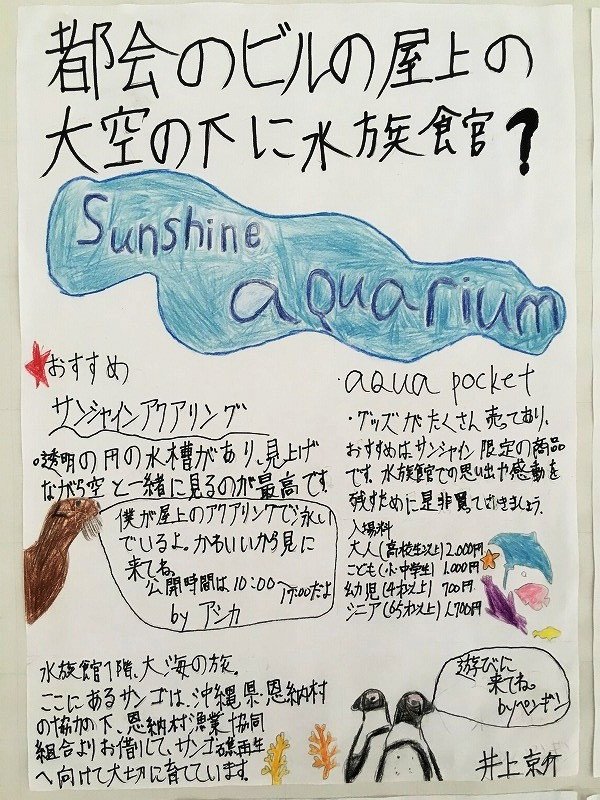 都会のビルの屋上の
大空の下に水族館?
Sunshine
aquarium
おすすめ
サンシャインアクアリング
。透明の円の水槽があり、見上げ
ながら空と一緒に見るのが最高です。
僕が屋上のアクアリングで泳い
でいるよ。かわいいから見に
来てね。
公開時間は10:00~17:00だよ
by アシカ
・aqua pocket
・グッズがたくさん売っており、
おすすめは、サンシャイン限定の商品
です。水族館での思い出や感動を
残すために是非買っておきましょう。
入場料
大人(高校生以上)2,000円
こども(小・中学生)1,000円
幼児(4才以上)700円
シニア(65才以上)1,700円
水族館1階、大海の旅。
ここにあるサンゴは、沖縄県・恩納村
の協力の下、恩納村漁業協同
組合よりお借りして、サンゴ礁再生
へ向けて大切に育てています。
遊びに
来てね。
byペンギン
井上京介